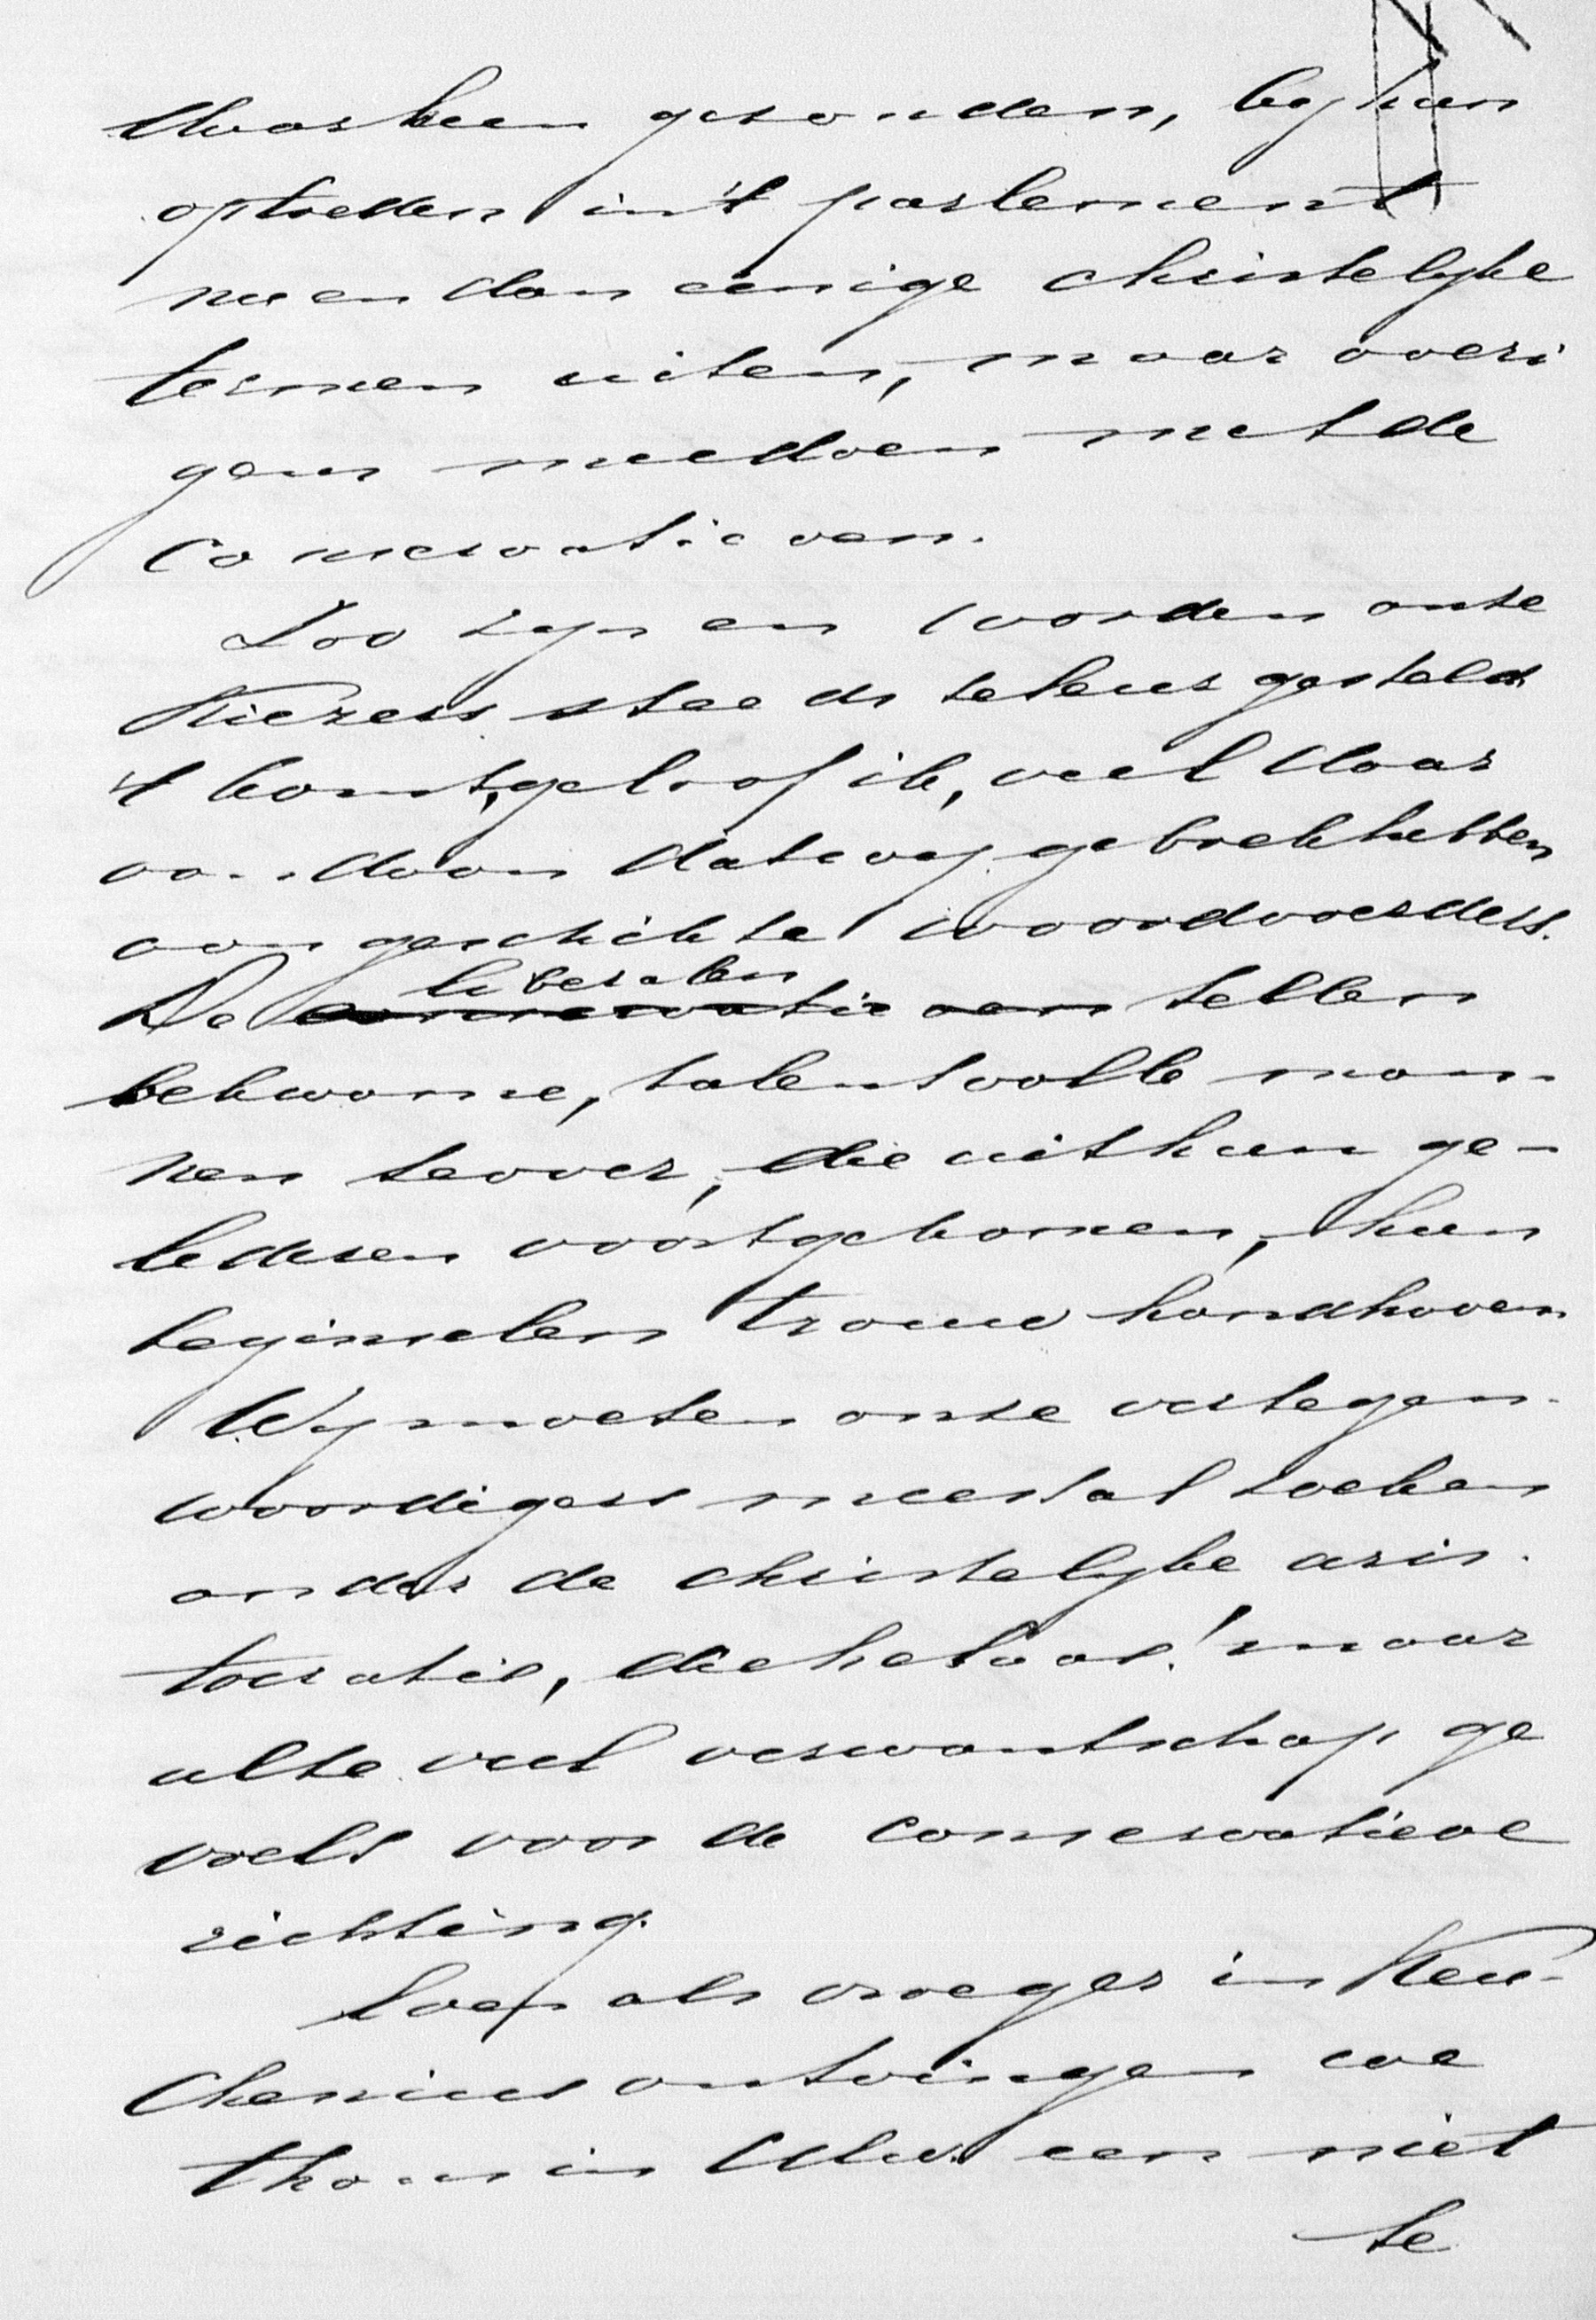 daarheen gezonden, by hun
optreden in 't parlement
nu en dan eenige christelyke
termen uiten, maar overi
gens meedoen met de
Conservatieven.
Zoo zyn en worden onze
Kiezers steeds teleurgesteld
't komt, geloof ik, veel daar
van daan dat wy gebrek hebben
aan geschikte woordvoerders.
De liberalen tellen
bekwame, talentvolle man-
nen te over, die uit hun ge-
lederen voortgekomen, hun
beginselen trouw handhaven
Wy moeten onze vertegen-
woordigers meestal zoeken
onder de christelyke aris-
tocratie, die helaas! maar
al te veel verwantschap ge
voelt voor de conservatieve
richting.
als vroeger in Keu-
chenius ontvingen we
thans in Uw. een niet
te